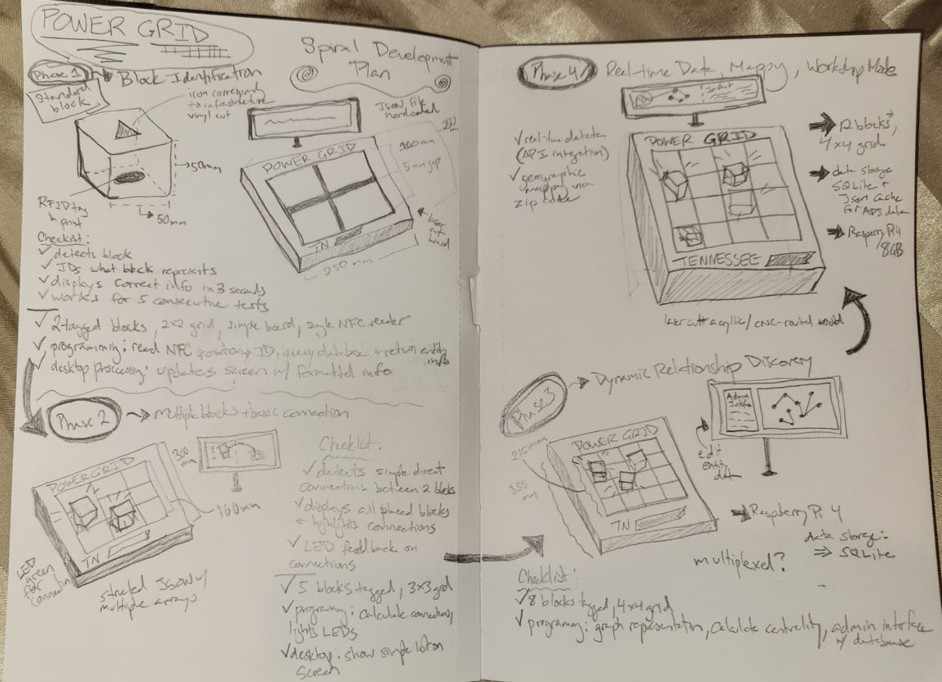 POWER GRID
Spiral Development
Plan
Phase 1
Block Identification
Standard
block
icon correspond
to infrastructure
vinyl cut
50mm
50mm
RFID tag
Checklist:
✓ detects block
✓ IDs what block represents
✓ displays correct info in 3 seconds
✓ works for 5 consecutive tests
JSON file
hardcoded
POWER GRID
TN
250 mm
200mm
5mm gap
✓ 2 tagged blocks, 2x2 grid, single board, single NFC reader
✓ programming: read NFC ID, query database + return entity info
✓ desktop processing: updates screen w/ formatted info
Phase 2
Multiple blocks + basic connection
POWERGRID
TN
300 mm
160mm
LED
green
for
connection
JSON w/
multiple arrays
Checklist:
✓ detects single direct
connections between 2 blocks
✓ displays all placed blocks
+ highlights connections
✓ LED feedback on
connections
✓ 5 blocks tagged, 3x3 grid
✓ programming: calculate connections,
lights LEDs
✓ desktop: show simple
screen
Phase 4
Real-time Data, Mapping, Workshop Mode
✓ real-time data
(API integration)
✓ geographic
mapping via
zip code
POWER GRID
TENNESSEE
12 blocks+,
4x4 grid
data storage
SQLite +
JSON cache
for API data
Raspberry Pi 4
8GB
laser cut acrylic/cnc-routed wood
Phase 3
Dynamic Relationship Discovery
POWER GRID
TN
Admin
edit
Raspberry Pi 4
data storage:
⇒ SQLite
multiplexed?
Checklist:
✓ 8 blocks tagged, 4x4 grid
✓ programming: graph representation, calculate centrality, admin interface
w/ database